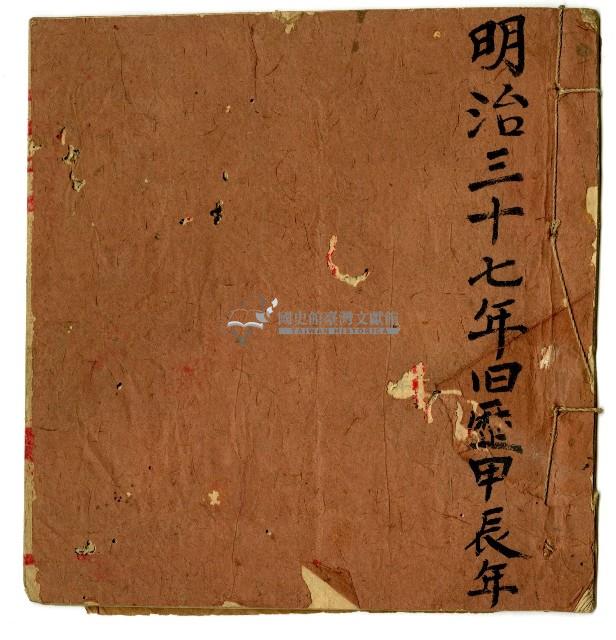 明治三十七年旧歴甲長年
國史館臺灣文獻館
TAIWAN HISTORICA